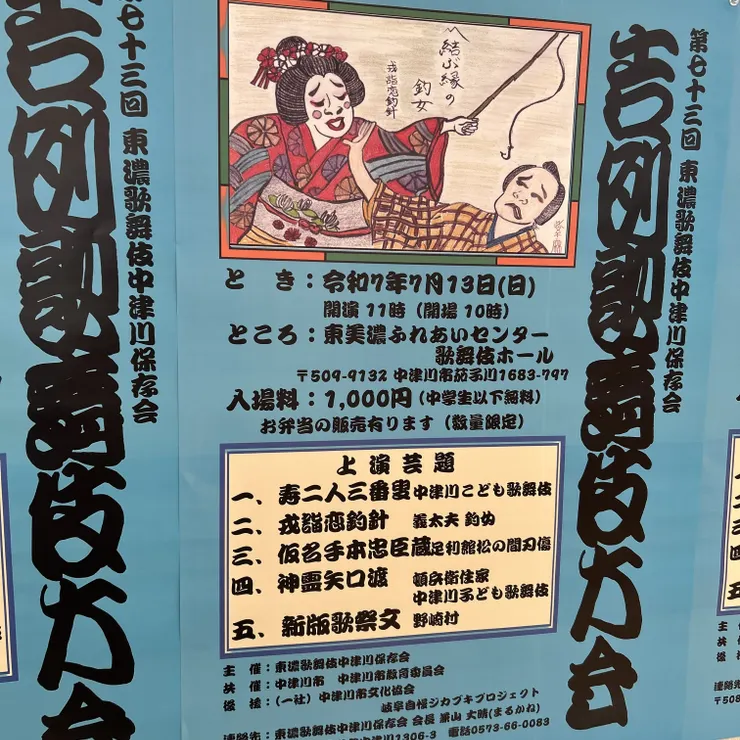 第七十三回 東濃歌舞伎中津川保存会
吉例歌舞伎大会
〽結ぶ縁の
釣女
戎詣恋釣針
とき：令和7年7月13日(日)
開演 11時（開場 10時）
ところ：東美濃ふれあいセンター
歌舞伎ホール
〒509-9132 中津川市茄子川1683-797
入場料：1,000円（中学生以下無料）
お弁当の販売有ります（数量限定）
上演芸題
一、寿二人三番叟 中津川こども歌舞伎
二、戎詣恋釣針 義太夫 釣女
三、仮名手本忠臣蔵 足利館松の間刃傷
四、神霊矢口渡 頓兵衛住家
中津川子ども歌舞伎
五、新版歌祭文 野崎村
主 催：東濃歌舞伎中津川保存会
共 催：中津川市 中津川市教育委員会
後 援：（一社）中津川市文化協会
岐阜自慢ジカブキプロジェクト
連絡先：東濃歌舞伎中津川保存会 会長
大晴(まるかね)
1306-3 電話0573-66-0083
第七十三回 東濃歌舞伎中津川保存会
吉例歌舞伎大会